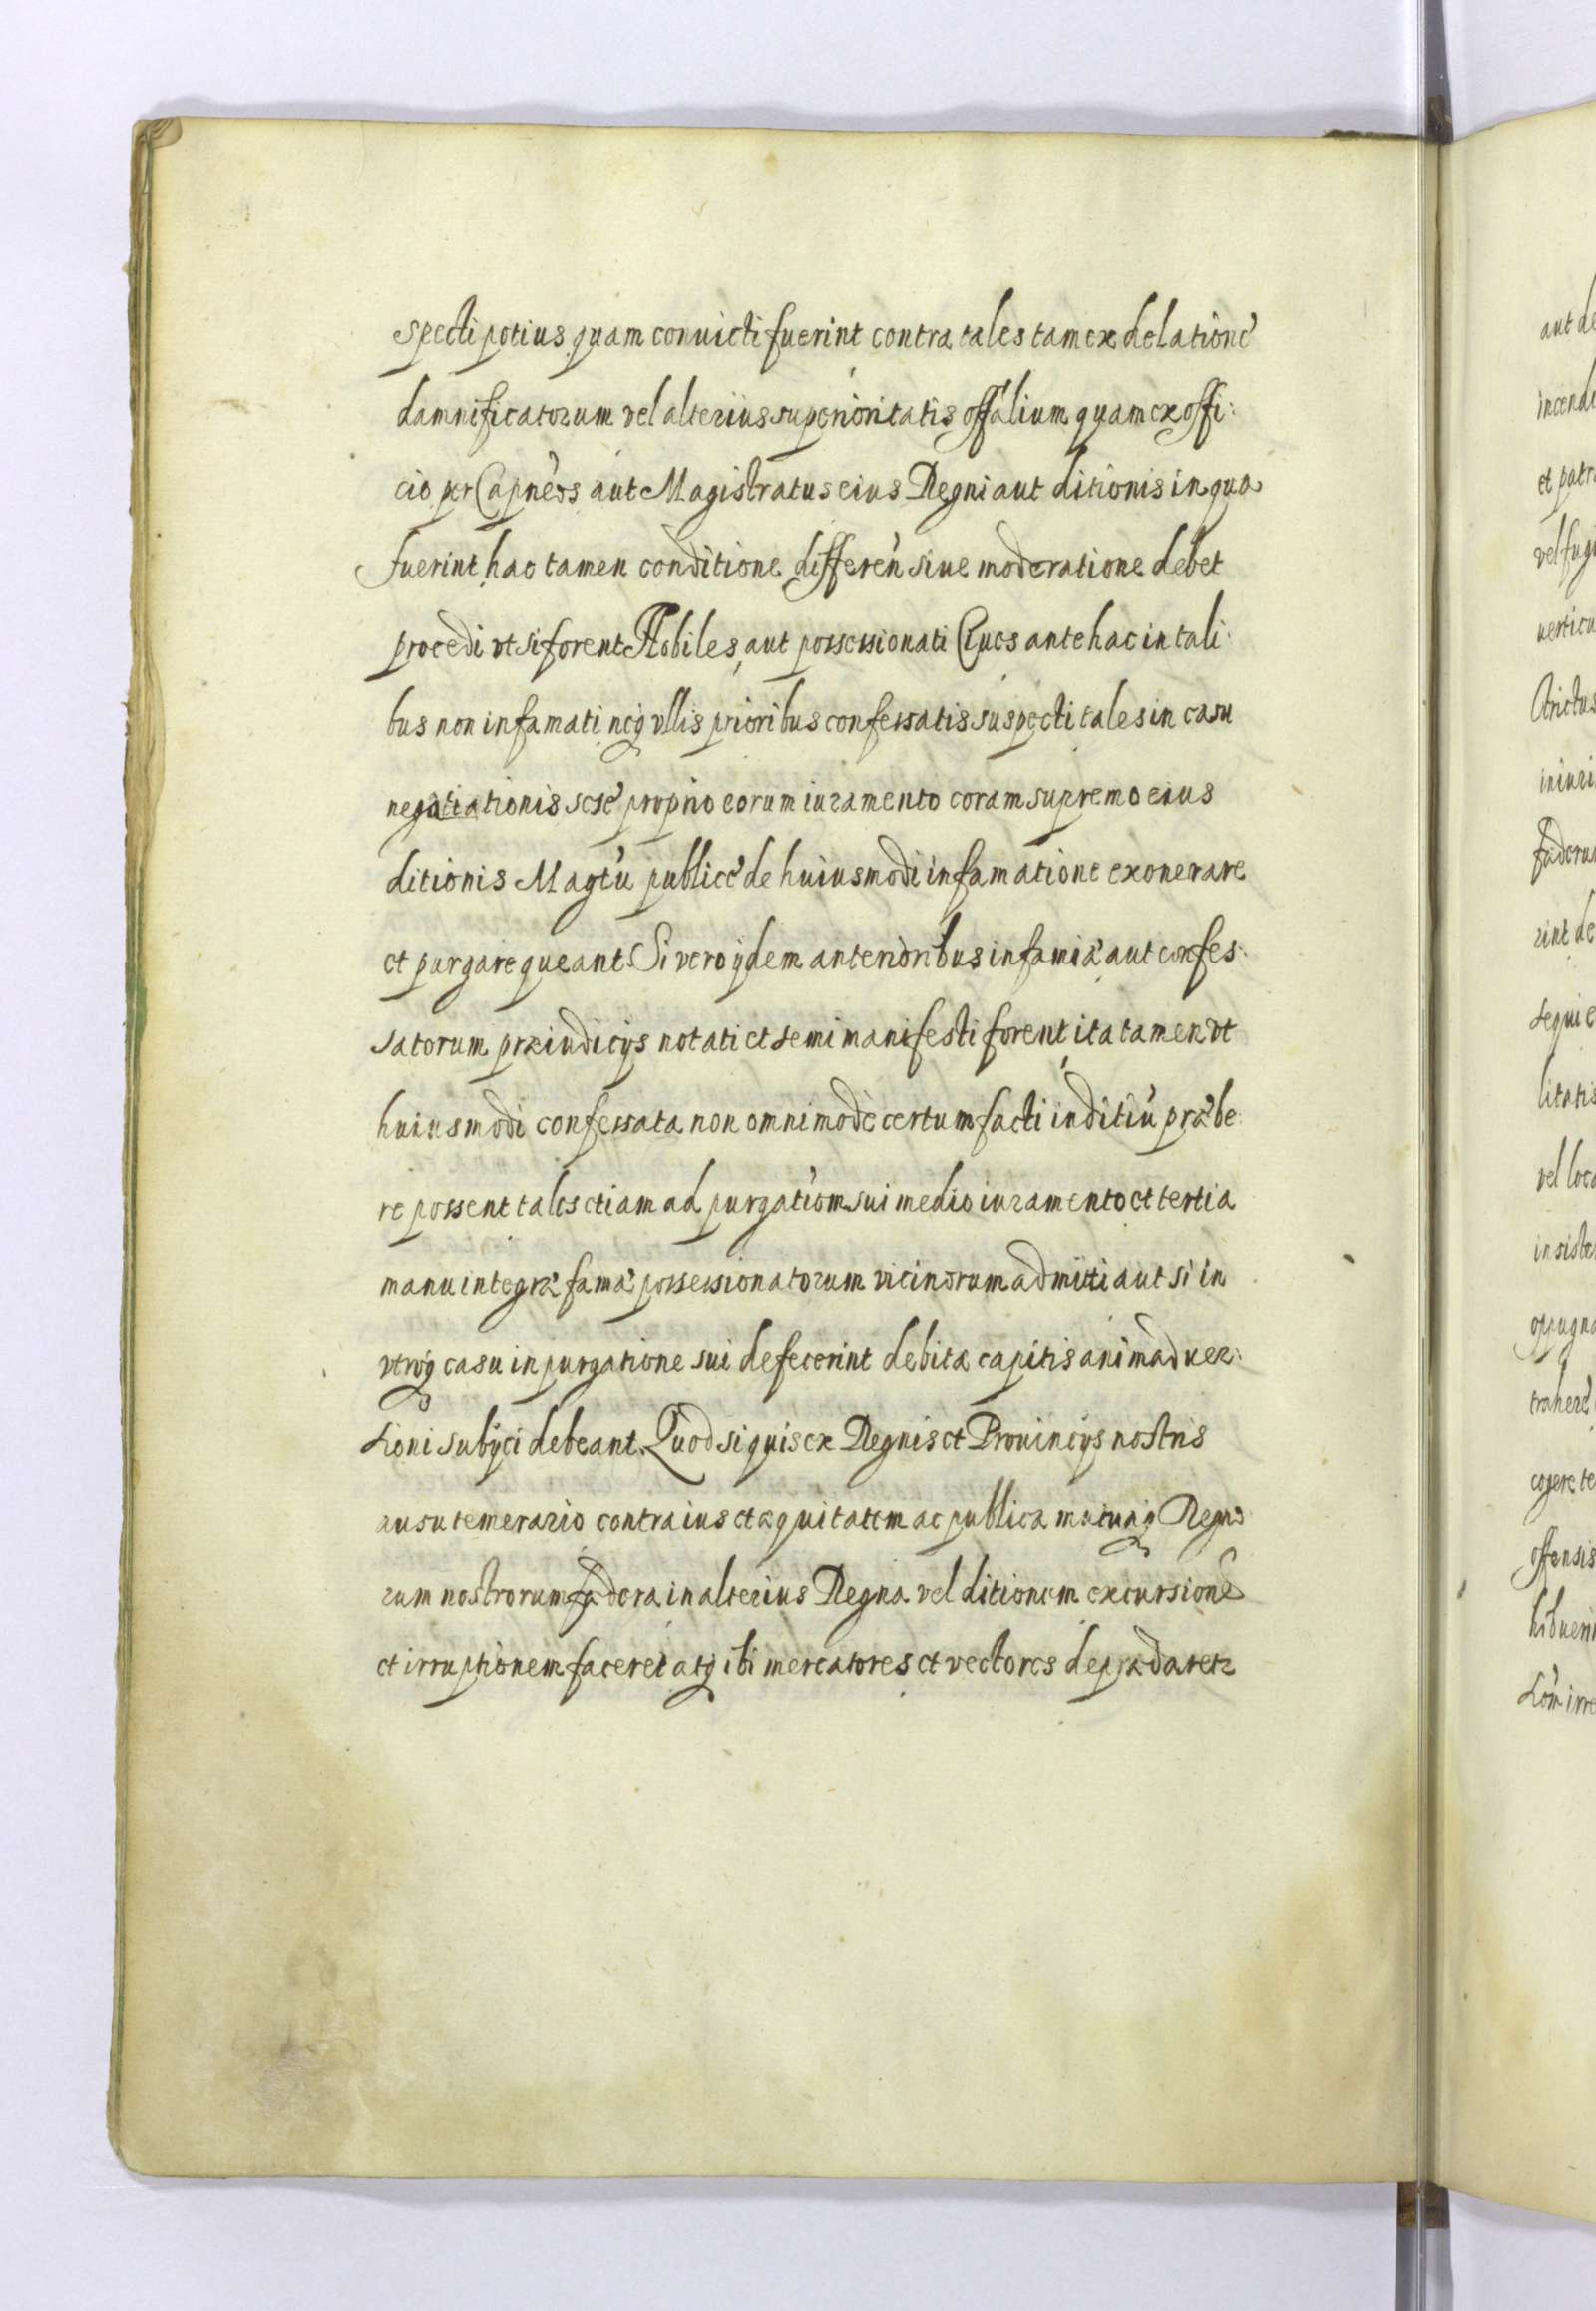 specti potius quam conuicti fuerint contra tales tam ex delatione
damnificatorum vel alterius superioritatis offālium quam ex offi:
cio per Capneos aut Magistratus eius Regni aut ditionis in quo
fuerint hac tamen conditione differen̄ siue moderatione debet
procedi vt si forent Nobiles, aut possessionati Ciues antehac in tali:
bus non infamati neq vllis prioribus confessatis suspecti tales in casu
negatiationis sese proprio eorum iuramento coram supremo eius
ditionis Magtu publice de huiusmodi infamatione exonerare
et purgare queant Si vero ijdem anterioribus infamiæ aut confes:
satorum præiudicijs notati et semimanifesti forent, ita tamen vt
huiusmodi confessata non omnimodè certum facti inditiū præbe:
re possent tales etiam ad purgatiōm sui medio iuramento et tertia
manu integræ famæ possessionatorum vicinorum admitti aut si in
vtroq casu in purgatione sui defecerint debitæ capitis animaduer:
sioni subijci debeant. Quod si quis ex Regnis et Prouincijs nostris
ausu temerario contra ius et æquitatem ac publica mutuaq Regno
rum nostrorum fædera in alterius Regna vel ditionem excursionē
et irruptionem faceret atq ibi mercatores et vectores deprædaretr